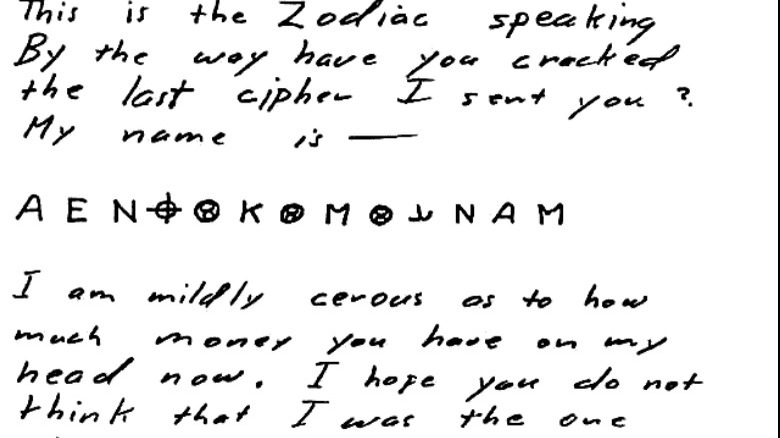 This is the Zodiac speaking
By the way have you cracked
the last cipher I sent you ?
My name is —
A E N ⌖ ⊗ K ⊗ M ⊗ N A M
I am mildly cerous as to how
much money you have on my
head now. I hope you do not
think that I was the one